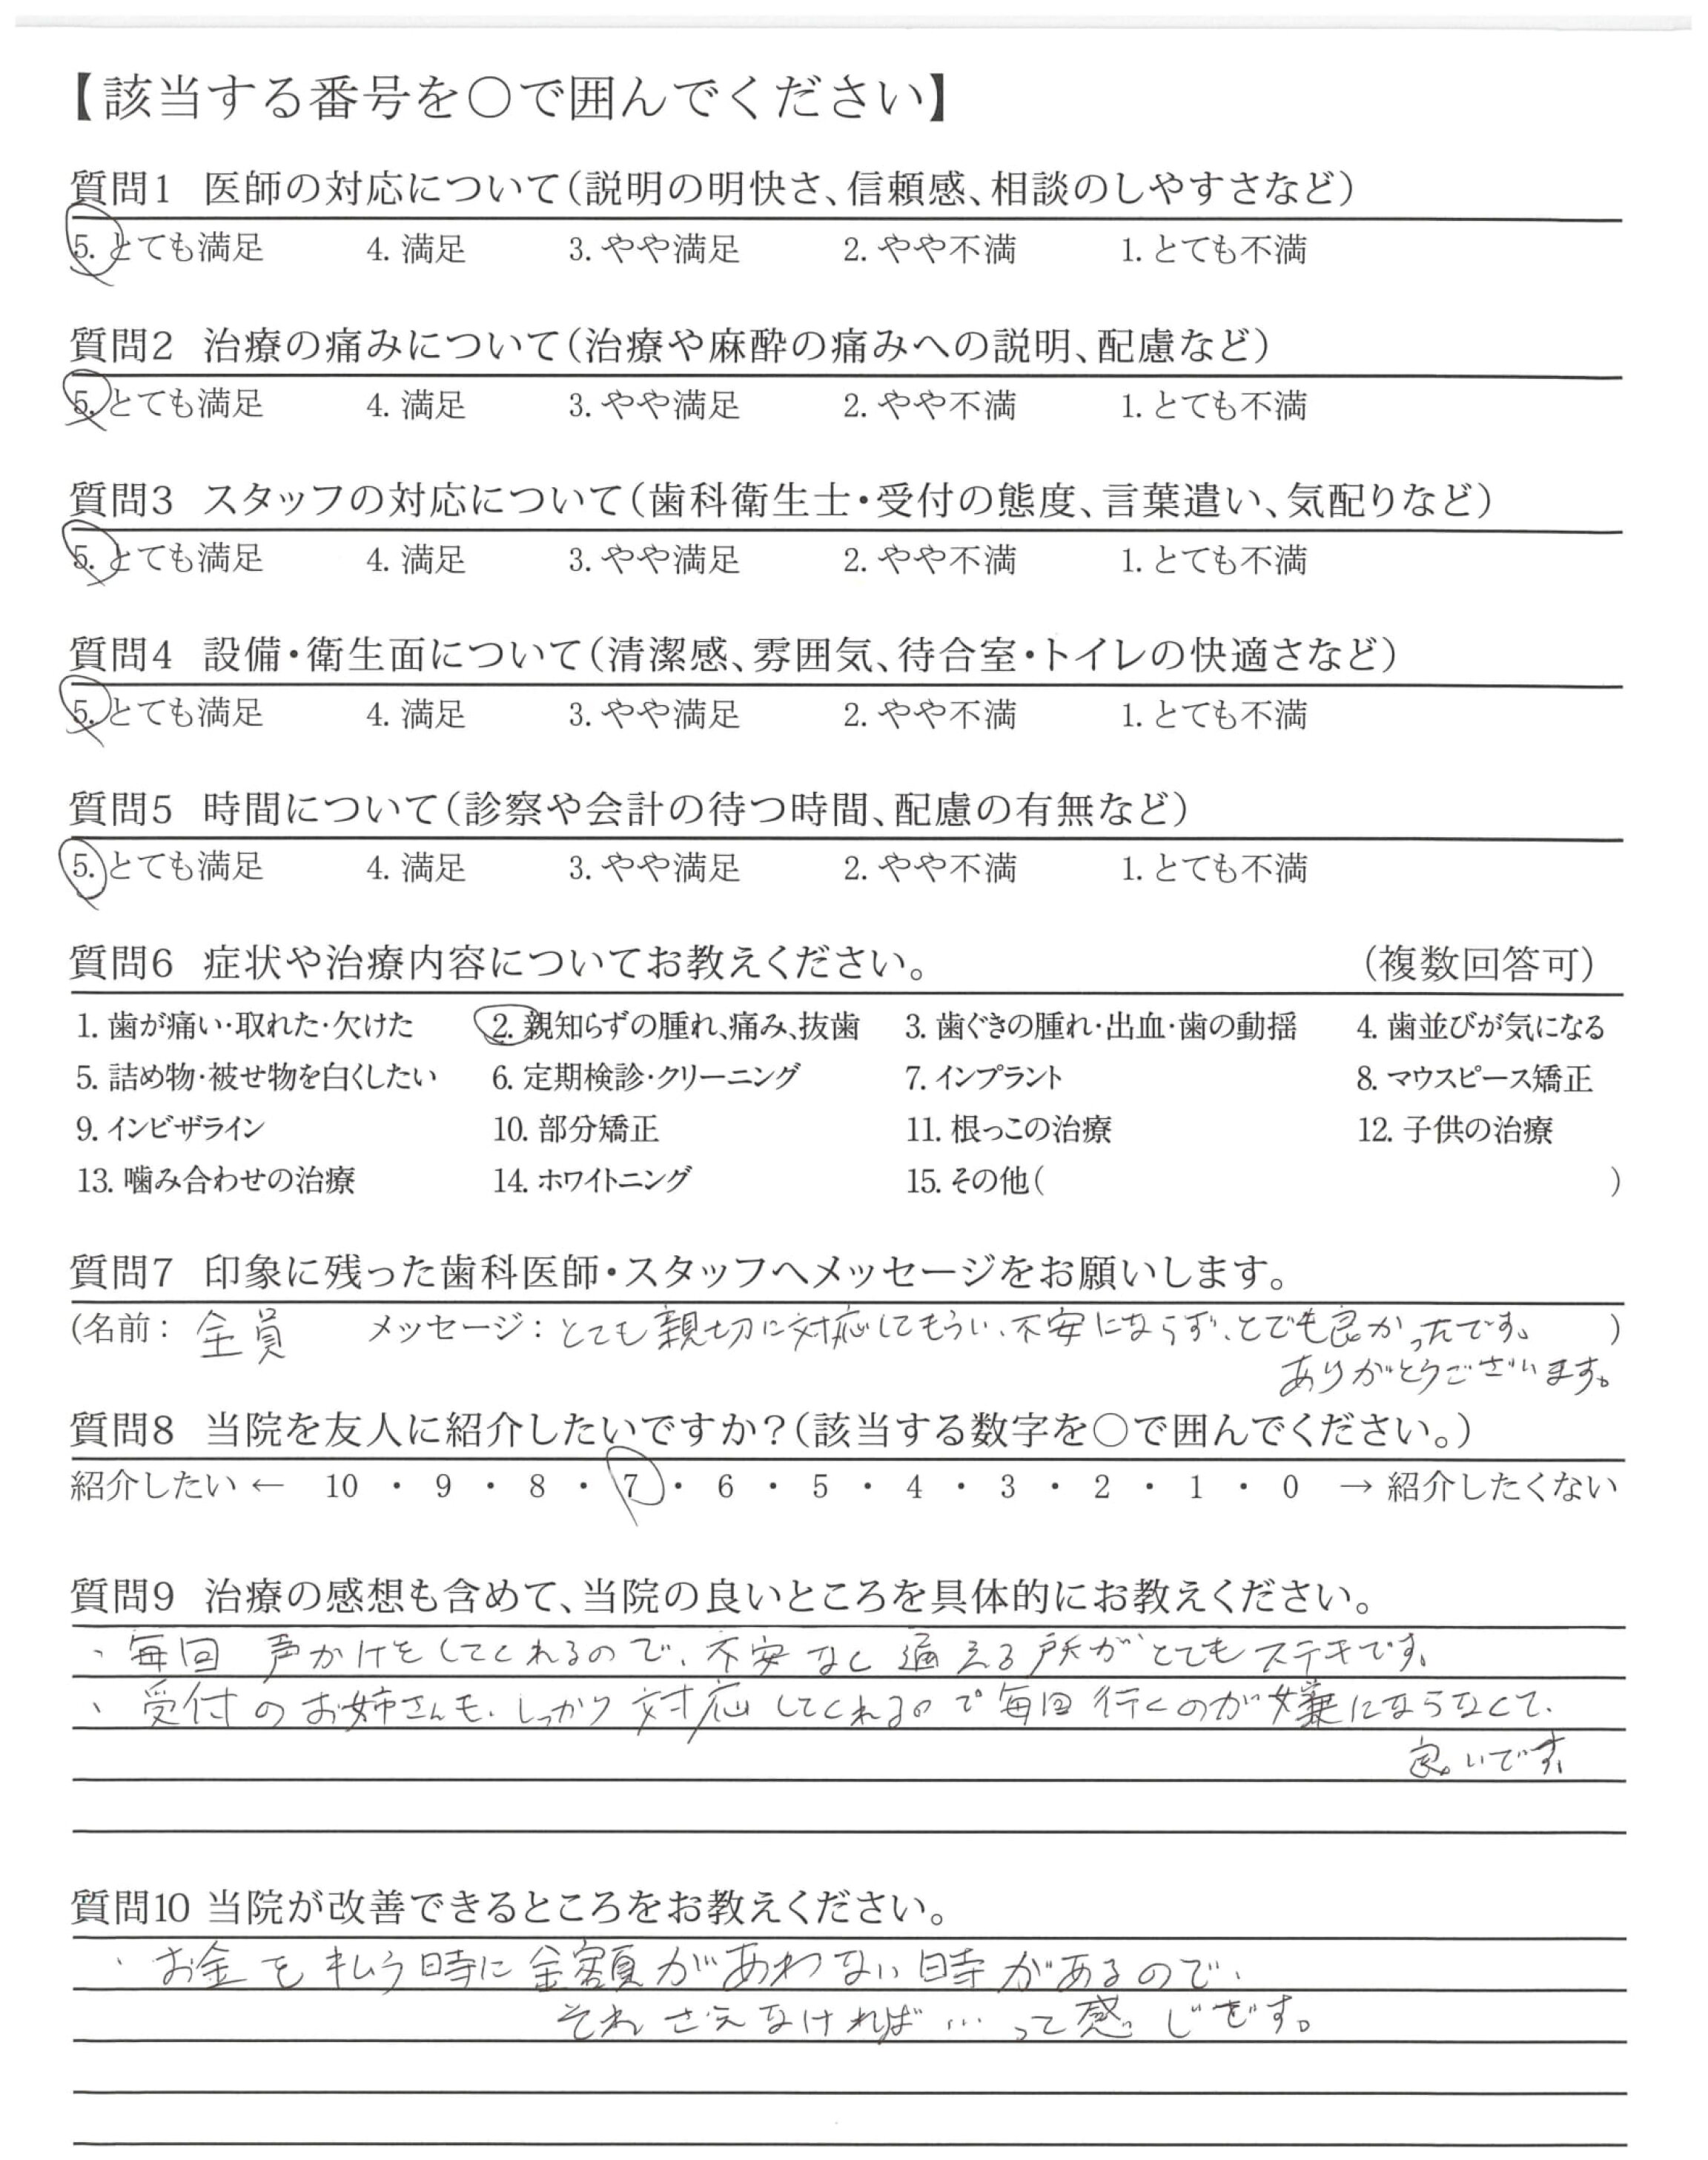 【該当する番号を○で囲んでください】
質問1 医師の対応について(説明の明快さ、信頼感、相談のしやすさなど)
5. とても満足 4. 満足 3. やや満足 2. やや不満 1. とても不満
質問2 治療の痛みについて(治療や麻酔の痛みへの説明、配慮など)
5. とても満足 4. 満足 3. やや満足 2. やや不満 1. とても不満
質問3 スタッフの対応について(歯科衛生士・受付の態度、言葉遣い、気配りなど)
5. とても満足 4. 満足 3. やや満足 2. やや不満 1. とても不満
質問4 設備・衛生面について(清潔感、雰囲気、待合室・トイレの快適さなど)
5. とても満足 4. 満足 3. やや満足 2. やや不満 1. とても不満
質問5 時間について(診察や会計の待つ時間、配慮の有無など)
5. とても満足 4. 満足 3. やや満足 2. やや不満 1. とても不満
質問6 症状や治療内容についてお教えください。 (複数回答可)
1. 歯が痛い・取れた・欠けた 2. 親知らずの腫れ、痛み、抜歯 3. 歯ぐきの腫れ・出血・歯の動揺 4. 歯並びが気になる
5. 詰め物・被せ物を白くしたい 6. 定期検診・クリーニング 7. インプラント 8. マウスピース矯正
9. インビザライン 10. 部分矯正 11. 根っこの治療 12. 子供の治療
13. 噛み合わせの治療 14. ホワイトニング 15. その他( )
質問7 印象に残った歯科医師・スタッフへメッセージをお願いします。
(名前: 全員 メッセージ: とても親切に対応してもらい、不安にならず、とても良かったです。 )
ありがとうございます。
質問8 当院を友人に紹介したいですか?(該当する数字を○で囲んでください。)
紹介したい ← 10 ・ 9 ・ 8 ・ 7 ・ 6 ・ 5 ・ 4 ・ 3 ・ 2 ・ 1 ・ 0 → 紹介したくない
質問9 治療の感想も含めて、当院の良いところを具体的にお教えください。
・毎回 声かけをしてくれるので、不安なく通える所がとてもステキです。
・受付のお姉さんも、しっかり対応してくれるので毎回行くのが嫌にならなくて、
良いです。
質問10 当院が改善できるところをお教えください。
・お金を払う時に金額があわない時があるので、
それさえなければ…って感じです。